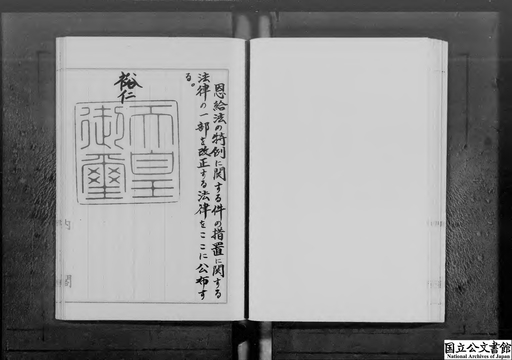 恩給法の特例に関する件の措置に関する
法律の一部を改正する法律をここに公布す
る。
裕仁
天皇
御璽
内閣
国立公文書館
National Archives of Japan